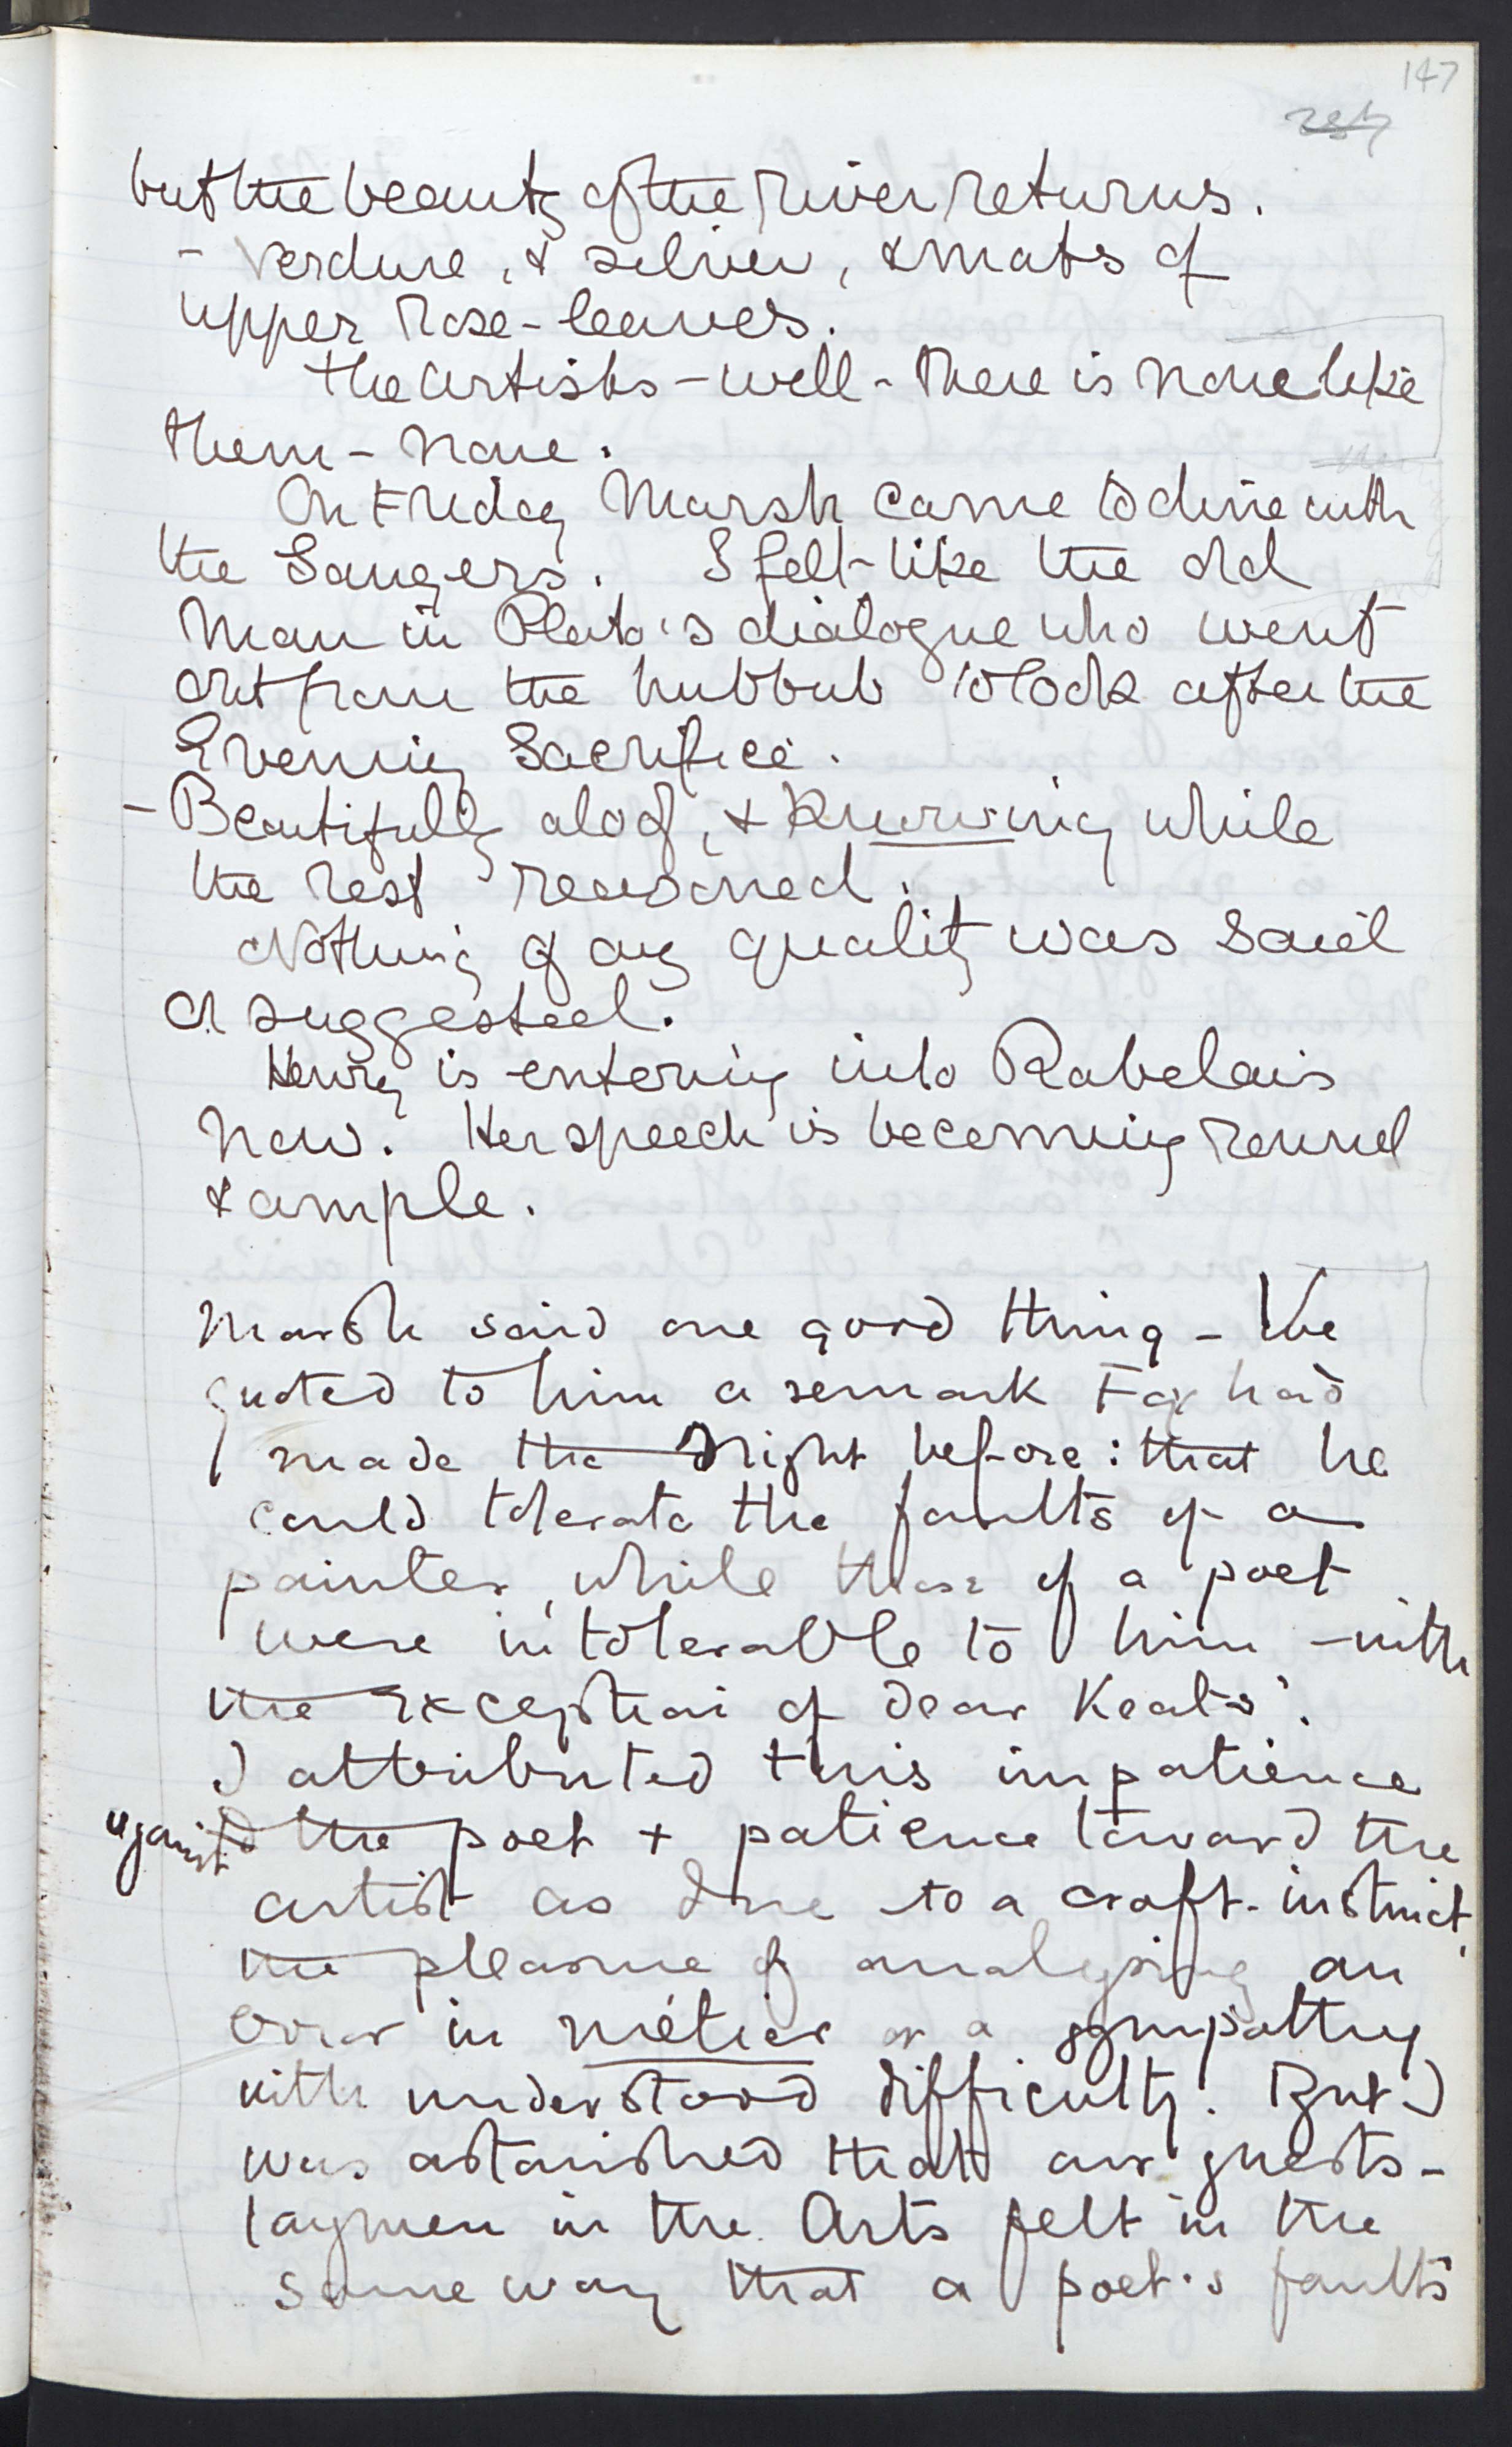 147
but the beauty of the river returns.
- Verdure, & silver, & mats of
upper rose-leaves.
The artists - well - there is none like
them - none.
On Friday Marsh came to dine with
the Sangers. I felt like the old
man in Plato's dialogue who went
out from the hubbub to look after the
Evening Sacrifice.
- Beautifully aloof, & knowing while
the rest reasoned.
Nothing of any quality was said
or suggested.
Henry is entering into Rabelais
now. Her speech is becoming round
& ample.
Marsh said one good thing - We
quoted to him a remark Fay had
made the night before: that he
could tolerate the faults of a
painter, while those of a poet
were intolerable to him - with
the exception of dear Keats'.
I attributed this impatience
against the poet + patience toward the
artist as due to a craft-instinct,
the pleasure of analysing an
error in métier or a sympathy
with understood difficulty. But I
was astonished that our guests -
laymen in the Arts felt in the
same way that a poet's faults